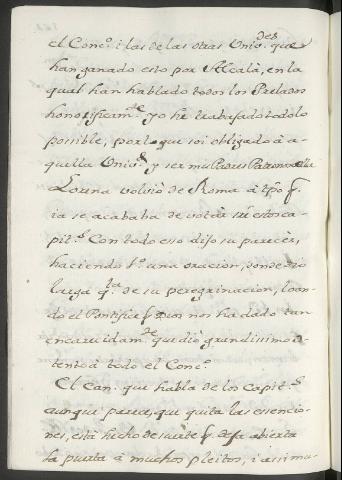 el Conc.º i las de las otras Univ.des que
han ganado esto por Alcalà, en la
qual han hablado todos los Prelados
honorificam.te yo he trabajado todo lo
possible, por lo que soi obligado à a-
quella Univ.d y ser mu Padres Patrona ella
Louna volviò de Roma à tpõ q.
ia se acababa de votar sũ estos ca-
pit.s Con todo eso dijo su parecer,
haciendo 1.º una oracion, donde diò
larga q.ta de su peregrinacion, loan-
do el Pontifice q Dios nos ha dado tan
encarecidam.te que diò grandissimo cõ-
tento à todo el Conc.º
El Can. que habla de los Capit.s
aunque parece, que quita las essencio-
nes, està hecho de suerte q. deja abierta
la puerta à muchos pleitos, i assimu-